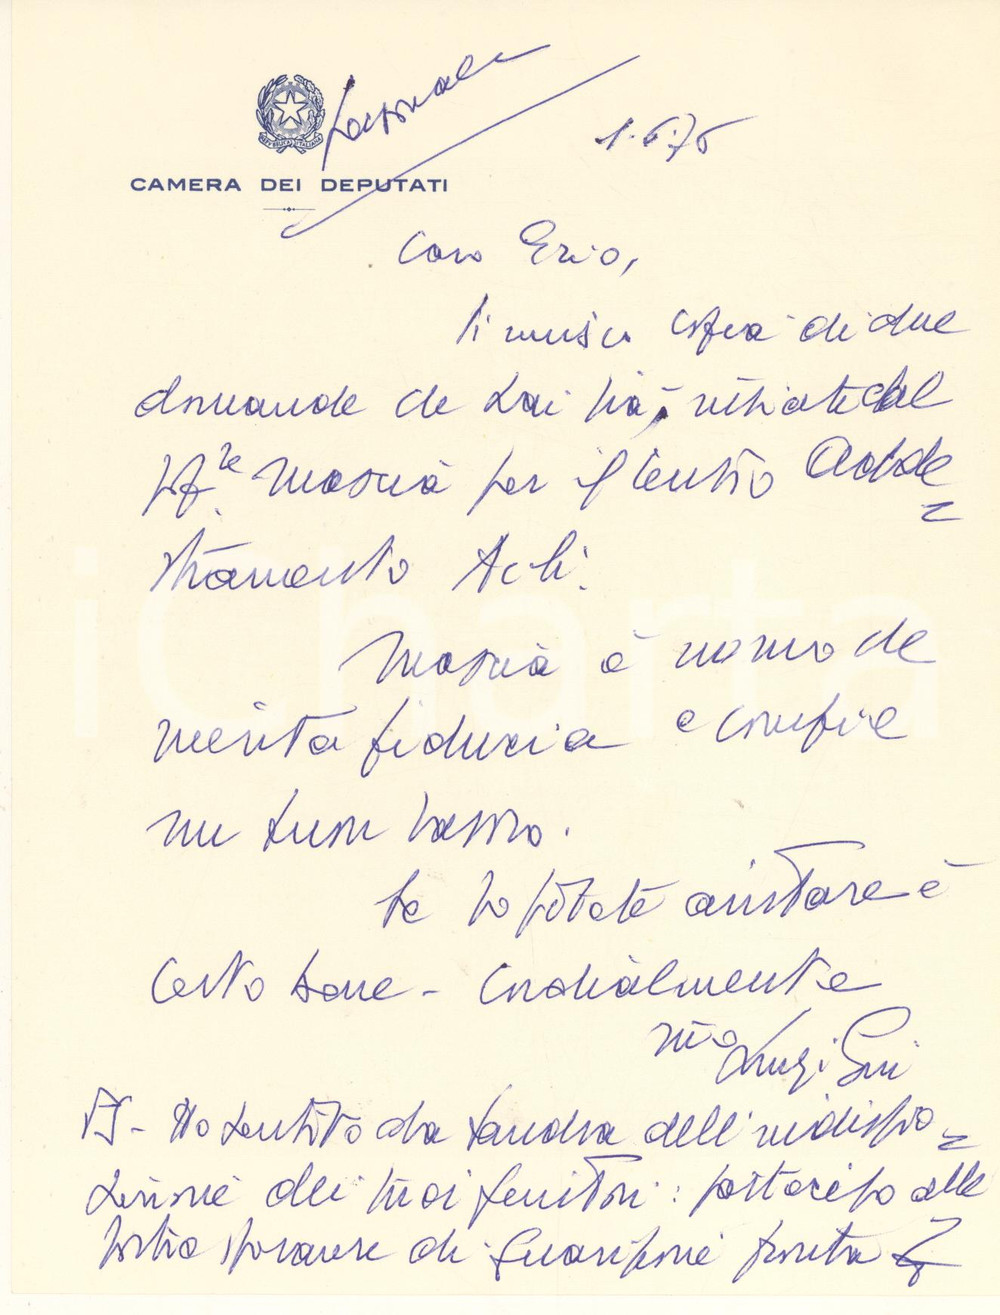 REPVBBLICA ITALIANA
CAMERA DEI DEPUTATI
Personale
1.6.76
Caro Ezio,
Ti unisco copia di due
domande che sai già, inviate dal
prof.re Mosuà per il Centro Adde=
stramento Acli.
Mosuà è uomo che
merita fiducia e confi
nostro.
Se lo potete aiutare è
certo bene - Cordialmente
tuo Luigi Gui
PS - Ho sentito da Sandra dell'indispo=
sizione dei tuoi genitori: partecipo alla
vostra speranza di guarigione pronta
iCharta